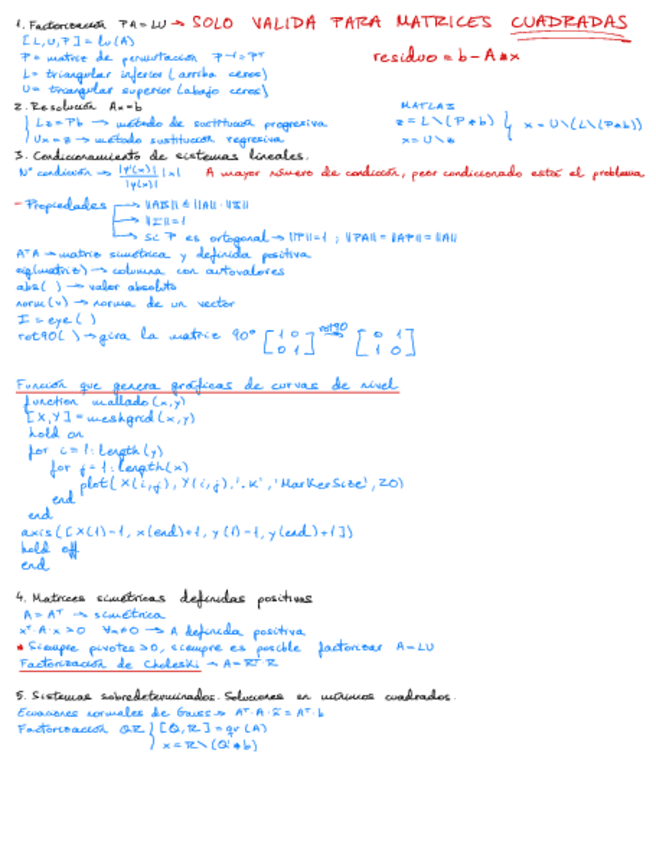 1. Factorización PA = LU → SOLO VALIDA PARA MATRICES CUADRADAS
[L,U,P] = lu(A)
P = matriz de permutación P⁻¹ = Pᵀ
residuo = b - A*x
L = triangular inferior (arriba ceros)
U = triangular superior (abajo ceros)
2. Resolución Ax = b
Lz = Pb → método de sustitución progresiva
Ux = z → método sustitución regresiva
MATLAB
z = L\(P*b)
x = U\z
x = U\(L\(P*b))
3. Condicionamiento de sistemas lineales.
Nº condición → |φ'(x)| / |φ(x)| |x| A mayor número de condición, peor condicionado está el problema
- Propiedades → ||AB|| ≤ ||A|| · ||B||
→ ||I|| = 1
→ Si P es ortogonal → ||P|| = 1 ; ||PA|| = ||AP|| = ||A||
AᵀA → matriz simétrica y definida positiva
eig(matriz) → columna con autovalores
abs( ) → valor absoluto
norm(v) → norma de un vector
I = eye( )
rot90( ) → gira la matriz 90° [1 0; 0 1] rot90→ [0 1; 1 0]
Función que genera gráficas de curvas de nivel
function mallado(x,y)
[X,Y] = meshgrid(x,y)
hold on
for i = 1:length(y)
for j = 1:length(x)
plot(X(i,j), Y(i,j),'.K','MarkerSize',20)
end
end
axis([x(1)-1, x(end)+1, y(1)-1, y(end)+1])
hold off
end
4. Matrices simétricas definidas positivas
A = Aᵀ → simétrica
xᵀ·A·x > 0 ∀x≠0 → A definida positiva
* Siempre pivotes > 0, siempre es posible factorizar A = LU
Factorización de Choleski → A = Rᵀ·R
5. Sistemas sobredeterminados. Soluciones en mínimos cuadrados.
Ecuaciones normales de Gauss → Aᵀ·A·x̄ = Aᵀ·b
Factorización QR { [Q,R] = qr(A)
x = R\(Q'*b)